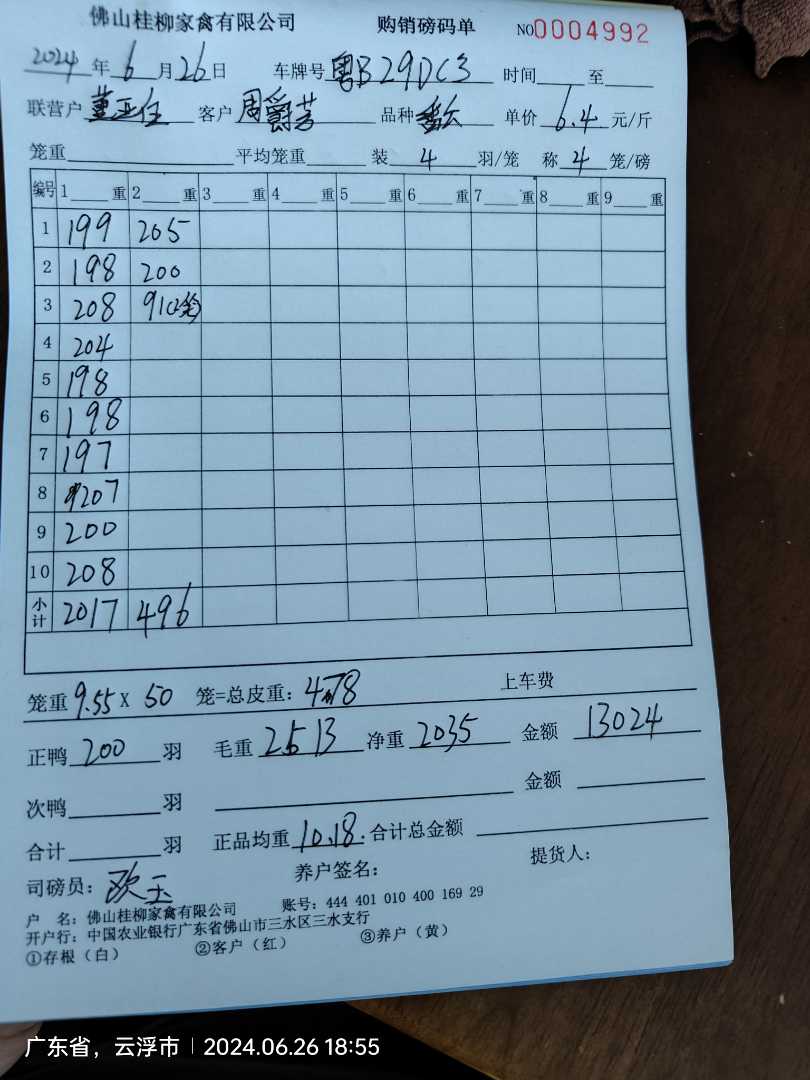 佛山桂柳家禽有限公司 购销磅码单 NO0004992
2024年6月26日 车牌号粤B29DC3 时间____至____
联营户 客户周爵芳 品种番 单价6.4元/斤
笼重____平均笼重____装4羽/笼 称4笼/磅
编号 1____重 2____重 3____重 4____重 5____重 6____重 7____重 8____重 9____重
1 199 205
2 198 200
3 208 91(2笼)
4 204
5 198
6 198
7 197
8 207
9 200
10 208
小计 2017 496
笼重9.55X50笼=总皮重:478 上车费
正鸭200羽 毛重2513净重2035 金额13024
次鸭____羽 ____ 金额____
合计____羽 正品均重10.18.合计总金额____
司磅员:欧玉 养户签名: 提货人:
户 名:佛山桂柳家禽有限公司 账号:444 401 010 400 169 29
开户行:中国农业银行广东省佛山市三水区三水支行
①存根(白) ②客户(红) ③养户(黄)
广东省,云浮市 | 2024.06.26 18:55